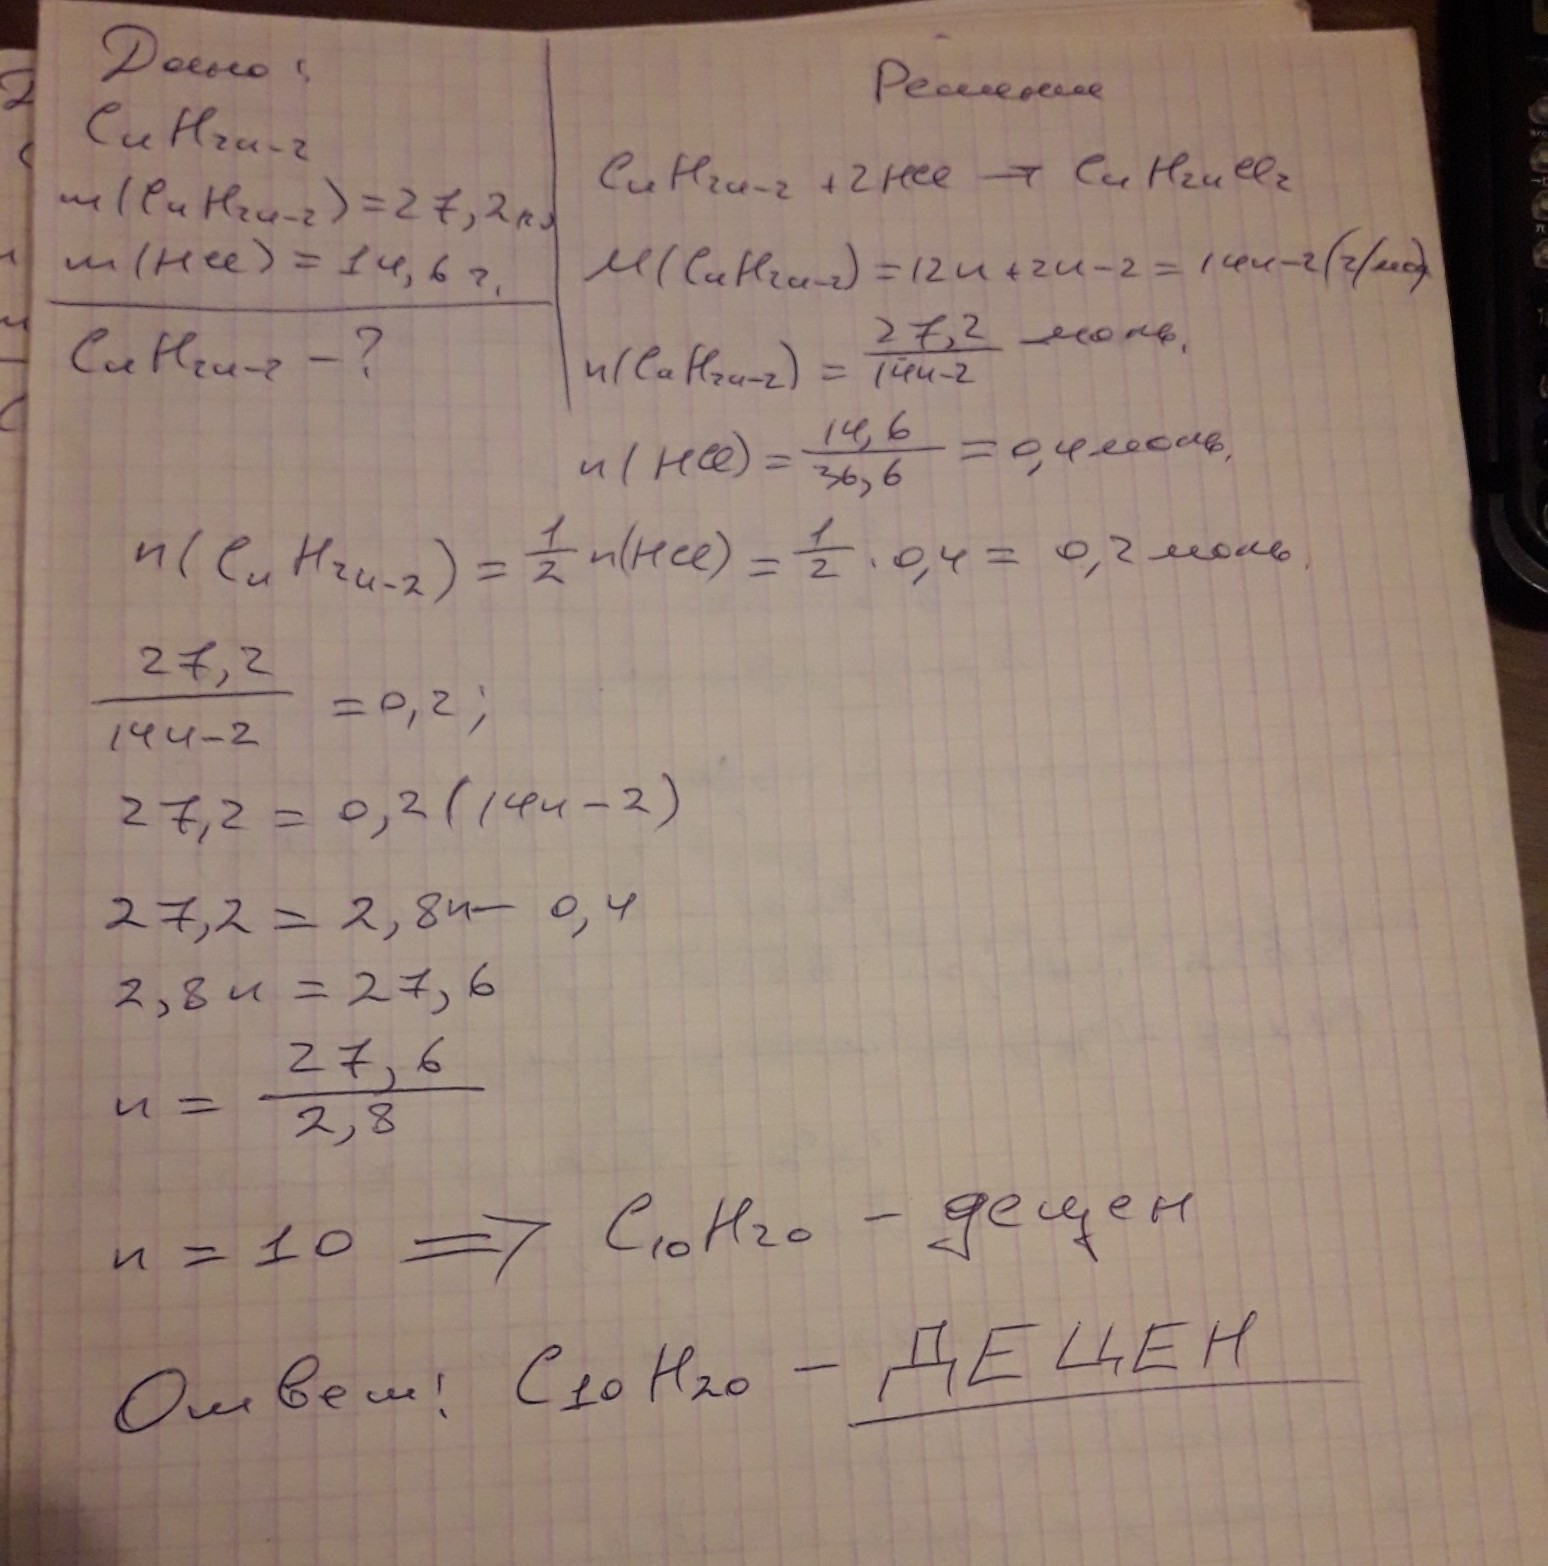 Дано:
CnH2n-2
m(CnH2n-2)=27,2
m(HCl)=14,6г.
CnH2n-2 - ?
Решение
CnH2n-2 + 2HCl → CnH2nCl2
M(CnH2n-2)=12n+2n-2=14n-2(г/моль)
n(CnH2n-2) = 27,2/14n-2 моль.
n(HCl) = 14,6/36,6 = 0,4 моль.
n(CnH2n-2) = 1/2 n(HCl) = 1/2 · 0,4 = 0,2 моль.
27,2/14n-2 = 0,2;
27,2 = 0,2(14n-2)
27,2 = 2,8n - 0,4
2,8n = 27,6
n = 27,6/2,8
n = 10 ⇒ C10H20 - децен
Ответ: C10H20 - ДЕЦЕН